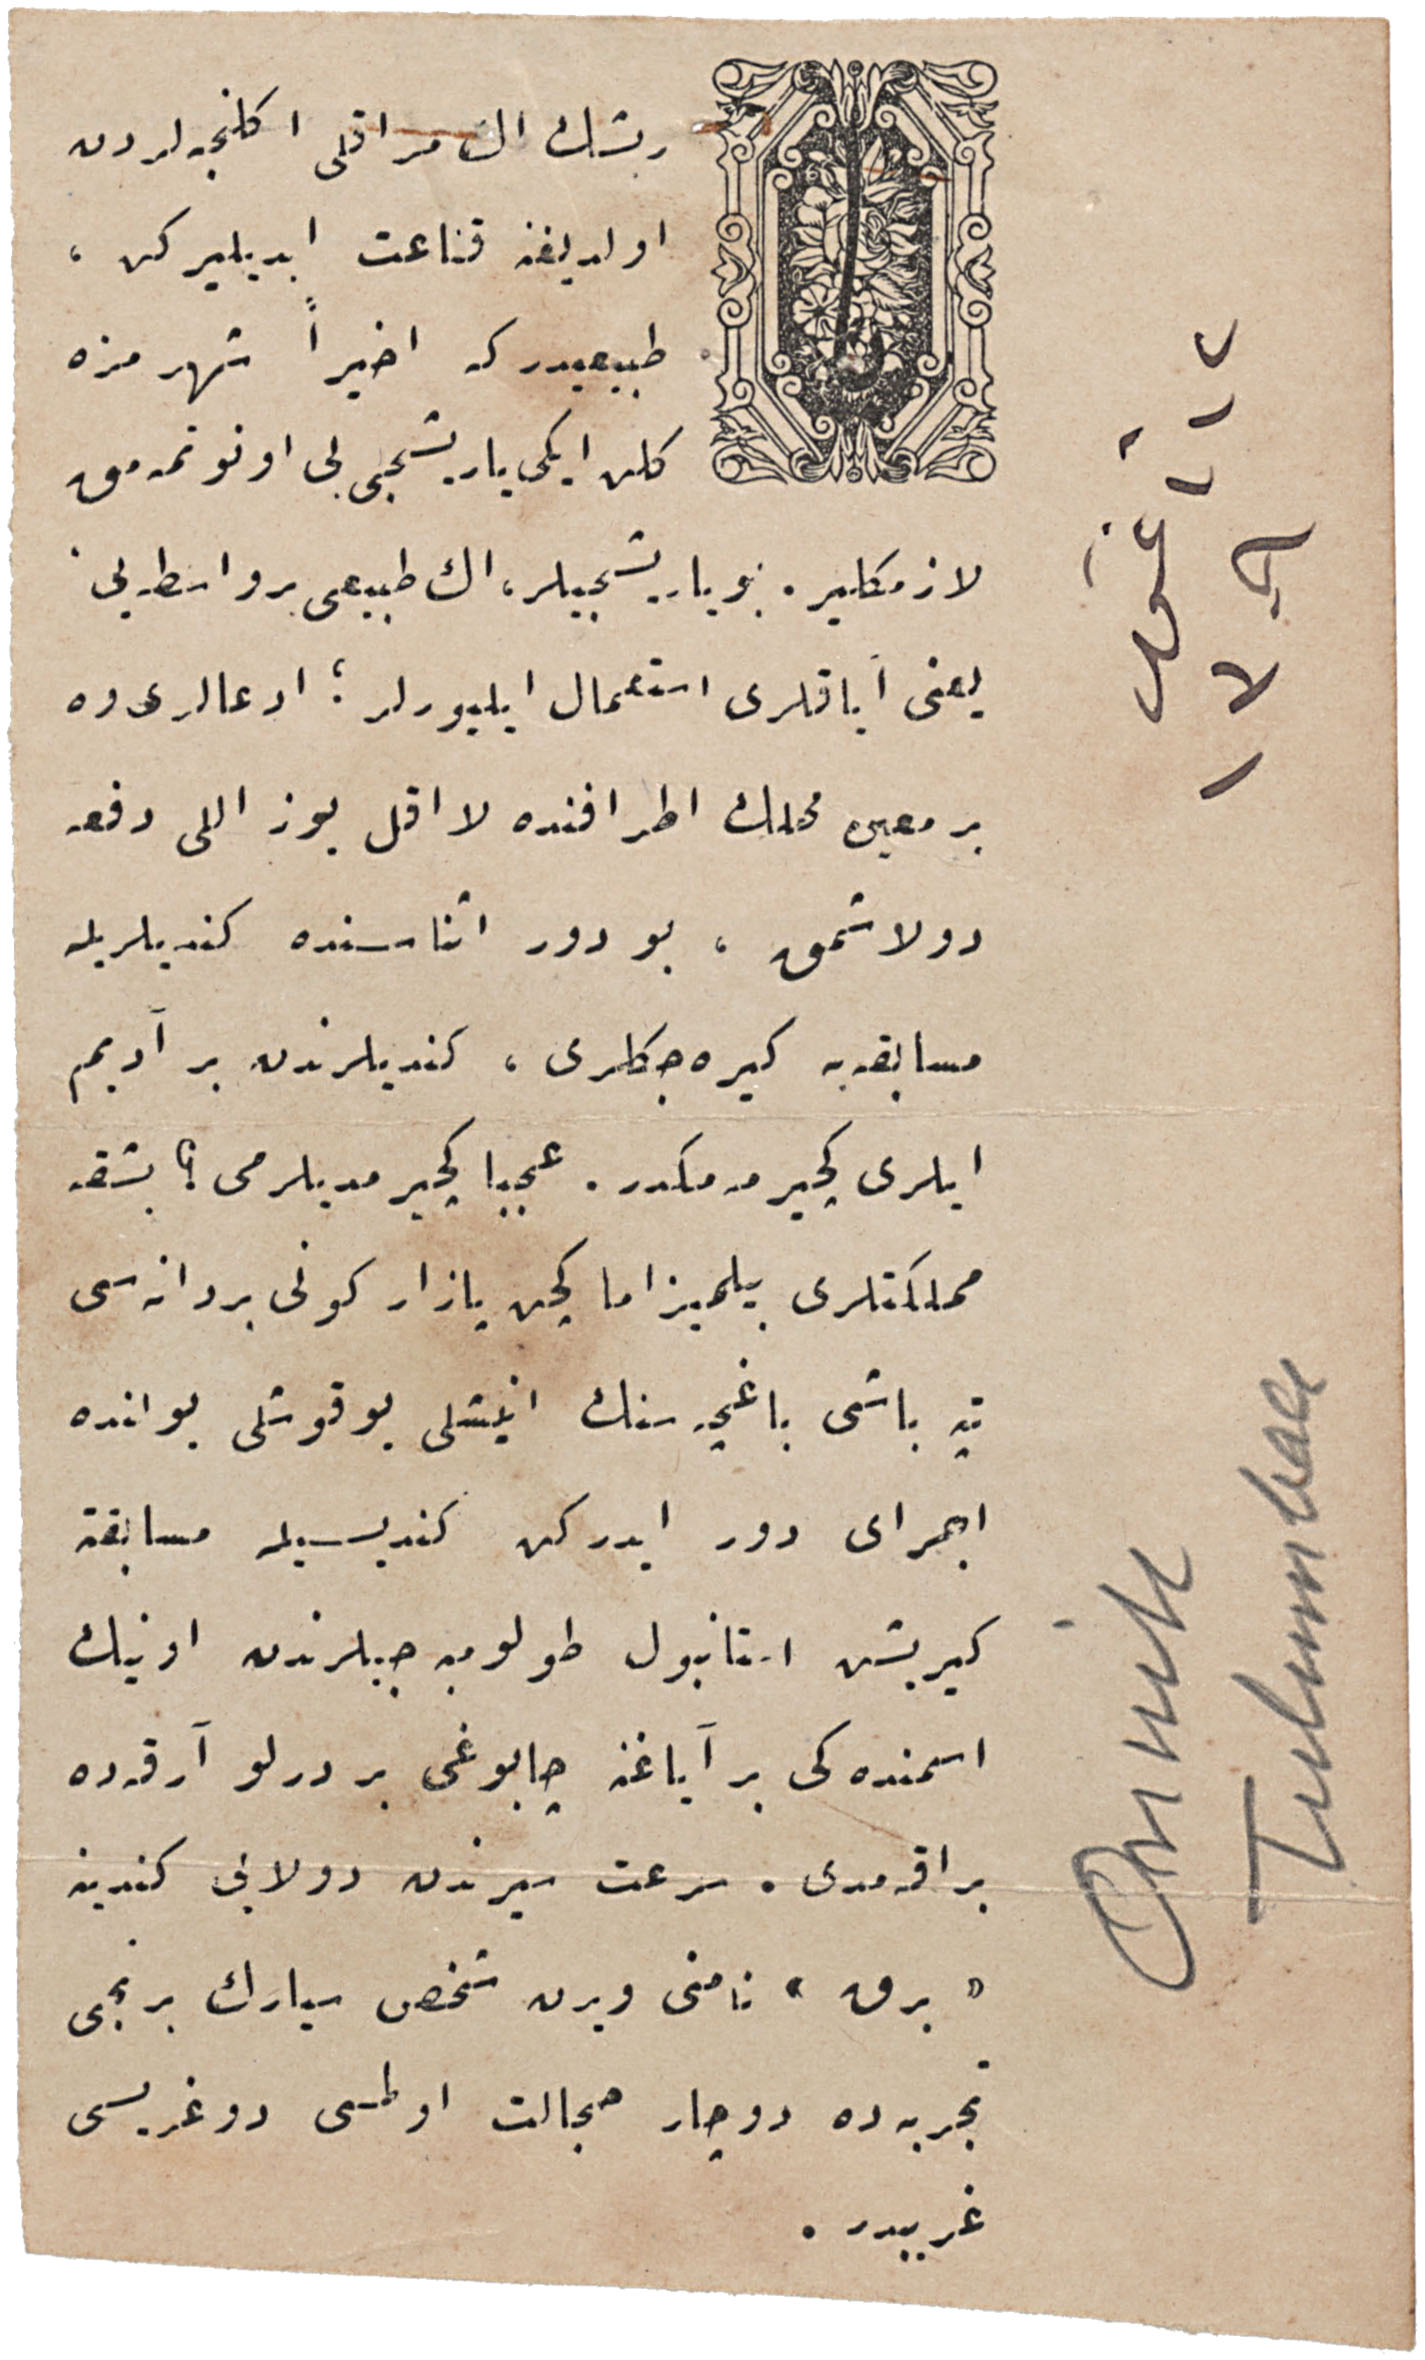 ریشك اك مراقلی اكلنجه‌لردن
اولدیغنه قناعت ایدیلیركن ،
طبیعیدر كه اخیراً شهرمزه
كلن ایكی یاریشجی‌یی اونوتمه‌مق
لازمكلیر . بو یاریشجیلر ، اك طبیعی بر واسطه‌یی
یعنی آیاقلری استعمال ایلیورلر ؛ ادعالری ده
بر معین محلك اطرافنده لااقل یوز اللی دفعه
دولاشمق ، بو دور اثناسنده كندیلریله
مسابقه‌یه كیره‌جكلری ، كندیلرندن بر آدیم
ایلری كچیرمه‌مكدر . عجبا كچیرمدیلرمی ؟ بشقه
مملكتلری بیلمیز اما كچن پازار كونی بر دانه‌سی
تپه باشی باغچه‌سنك انیشلی یوقوشلی یولنده
اجرای دور ایدركن كندیسیله مسابقه
كیریشن استانبول طولومبه‌جیلرندن اونیك
اسمنده‌كی بر آیاغنه چابوغی بر درلو آرقه‌ده
براقه‌مدی . سرعت سیرندن دولایی كندینه
« برق » نامنی ویرن شخص سیارك برنجی
تجربه‌ده دوچار خجالت اولمسی دوغریسی
غریبدر .
١٢ آغستوس
Onnik
Tulumbacı